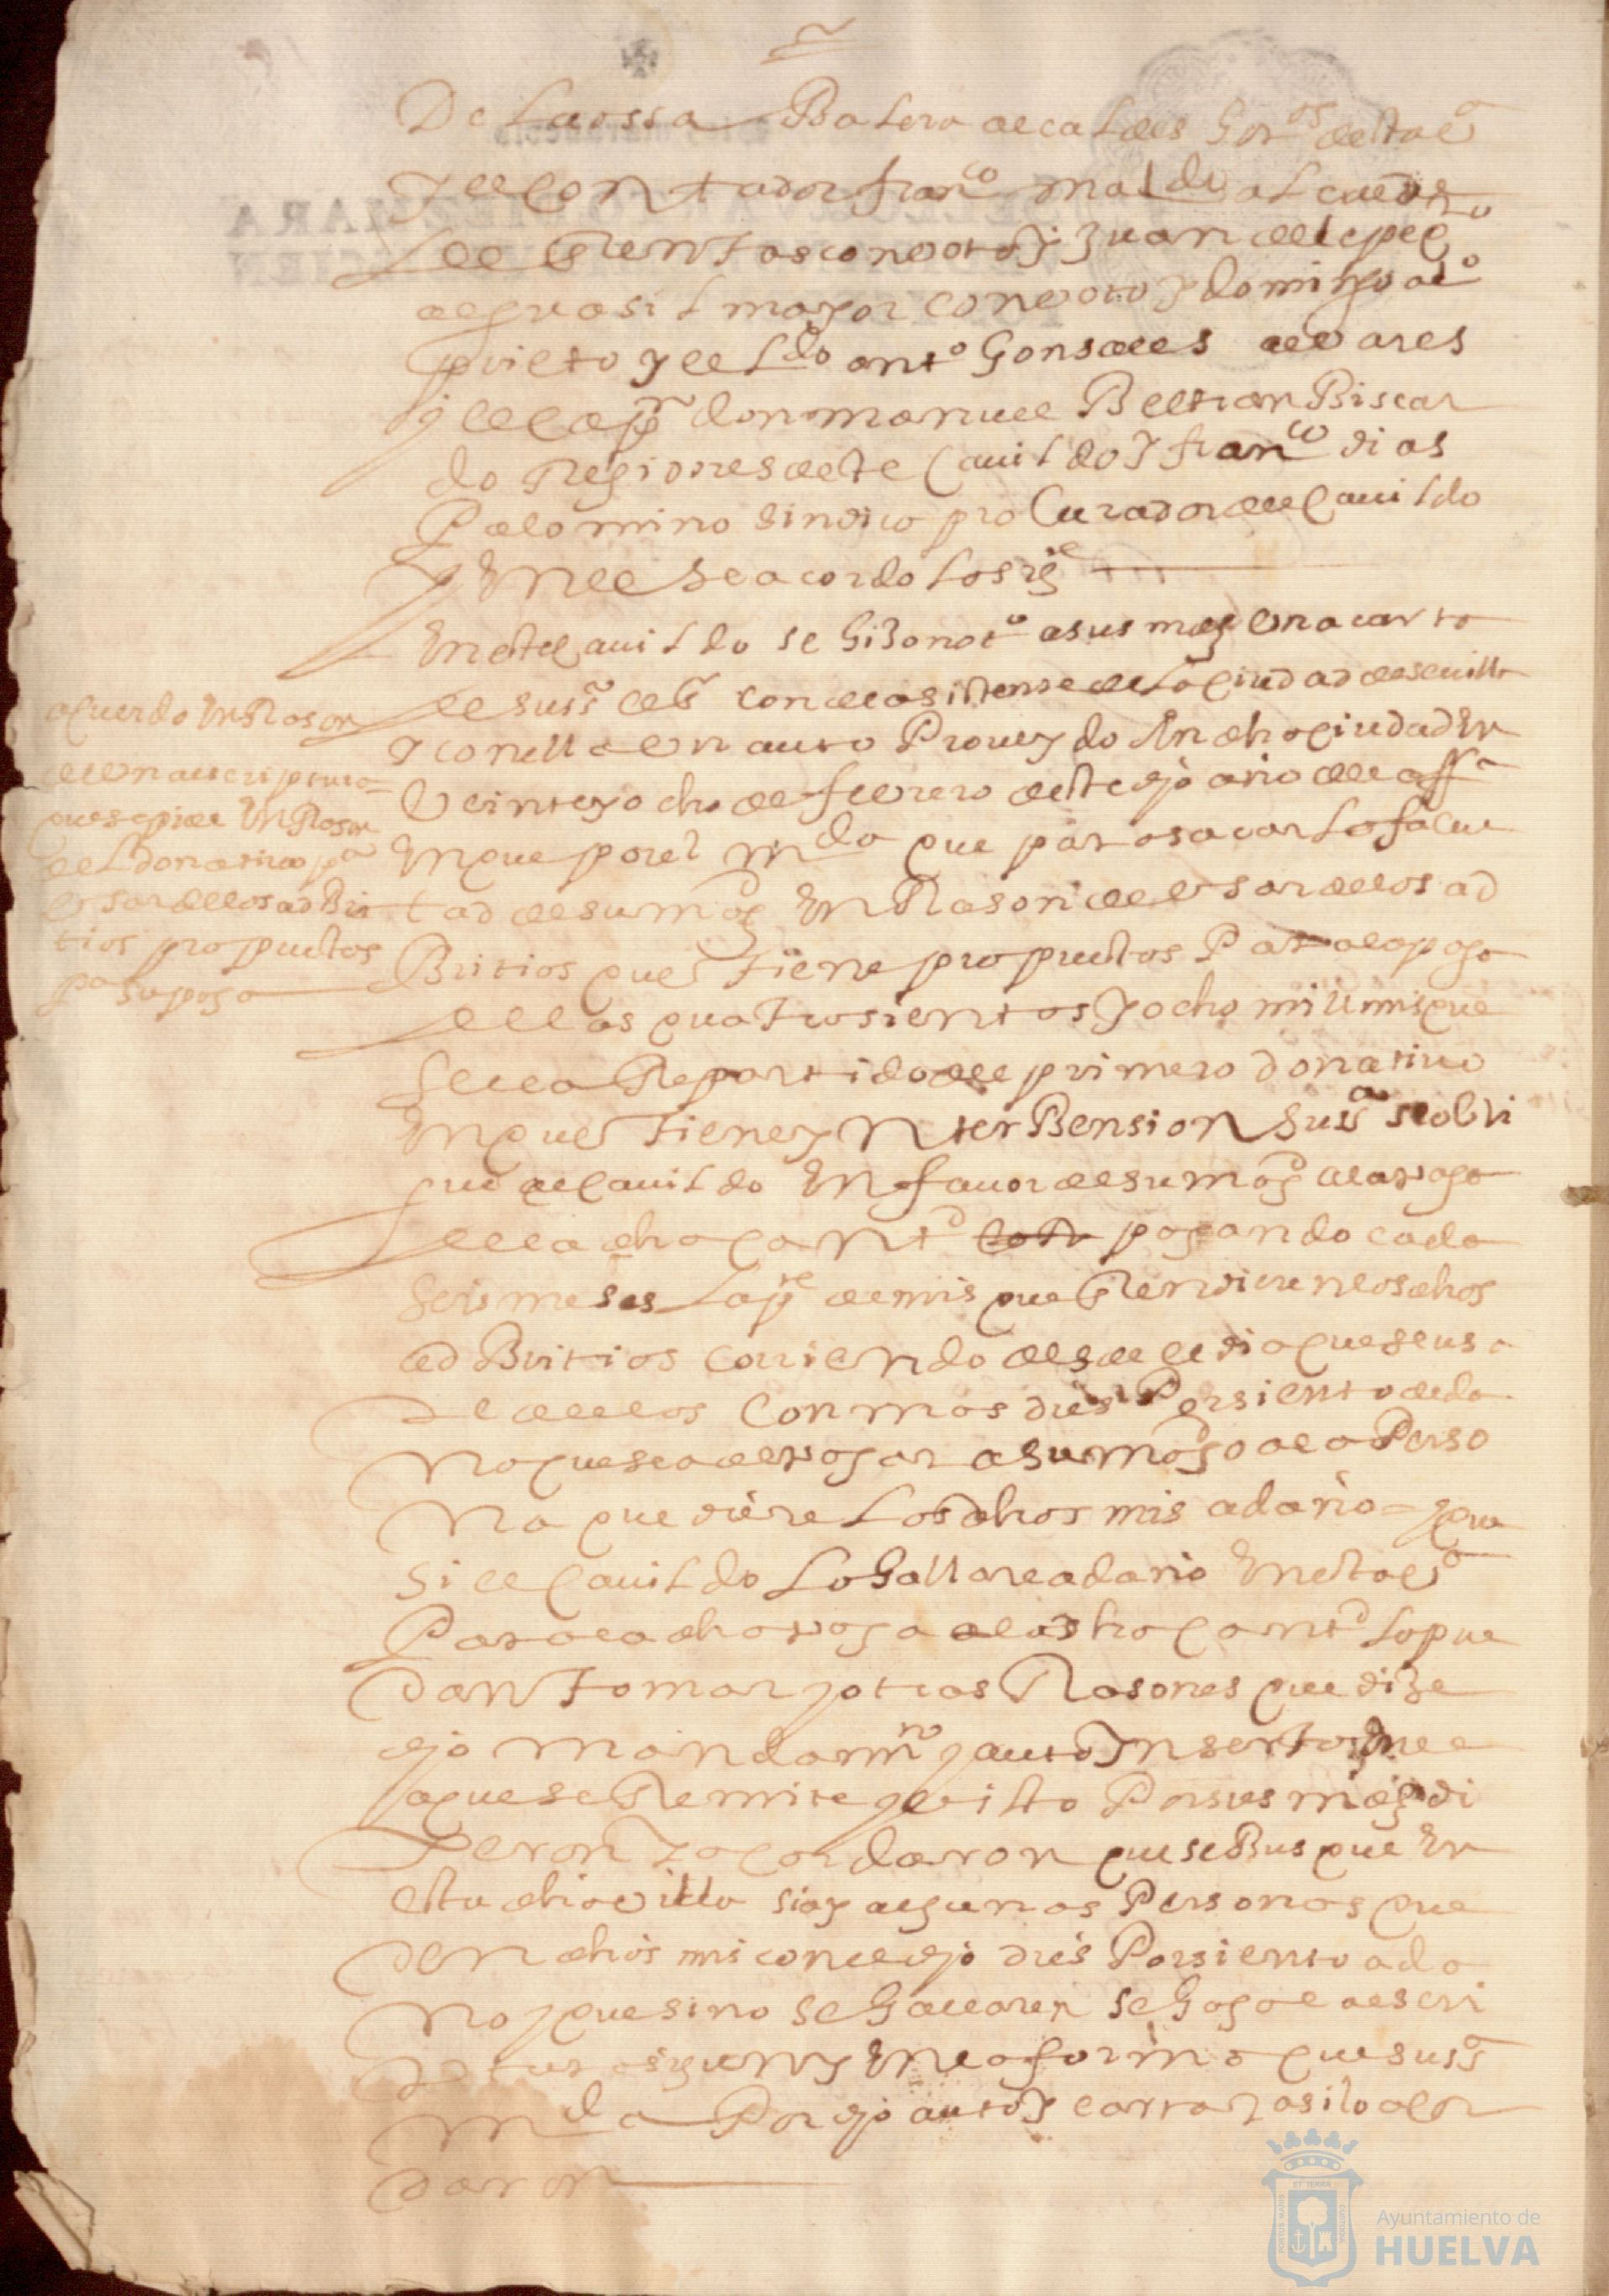 De la ossa Balera alcaldes hor.os desta v.a
y el contador fran.co mal.do al cued
de Rentas con voto y Juan de lepe
alguasil mayor con voto y domingo al.o
prieto y el l.do ant.o Gonsales albares
y el cap.n don manuel Beltran Biscar
do Regidores deste cauildo y fran.co dias
Palomino sindico procurador del cauildo
y en el se acordo lo sig.e
En este cauildo se hizo not.o a sus m.des una carta
de su s.a el s.r conde asistente de la ciudad de seuilla
y con ella un auto Proueydo en dha ciudad en
veinte y ocho de febrero deste dho año de la ff.a
en que por el m.da que para sacar la facul
tad de su mag.d en Rason de usar de los ad
Bitrios que tiene propuestos Para la paga
de las quatrosientos y ocho mill mrs que
se le a Repartido de el primero donatiuo
en que tiene ynterBension su s.a se obli
gue el cauildo en fauor de su mag.d a la paga
de la dha cant.d pagando cada
seis meses la p.te de mrs que Rindieren los dhos
adBitrios corriendo desde el dia que se usa
re de ellos con mas dies Por siento de da
ño que sea de pagar a su mag.d o a la Perso
na que diere los dhos mrs a daño = y que
si el cauildo lo hallare a daño en esta v.a
Para la dha paga de la dha cant.d lo pue
dan tomar y otras Rasones que dize
dho mandam.to y auto ynserto en el
que se Remite y visto Por sus m.des di
jeron y acordaron que se Busque en
esta dha villa si ay algunas Personas que
den dhos mrs con el dho dies Por siento a da
ño y que si no se hallaren se haga la escri
tura sigun y en la forma que su s.a
m.da Por dho auto y carta y asi lo acor
daron
acuerdo en Rason
de una escriptura
que se pide en Rason
del donatiuo p.a
usar de los adBi
trios propuestos
p.a su paga
Ayuntamiento de
HUELVA